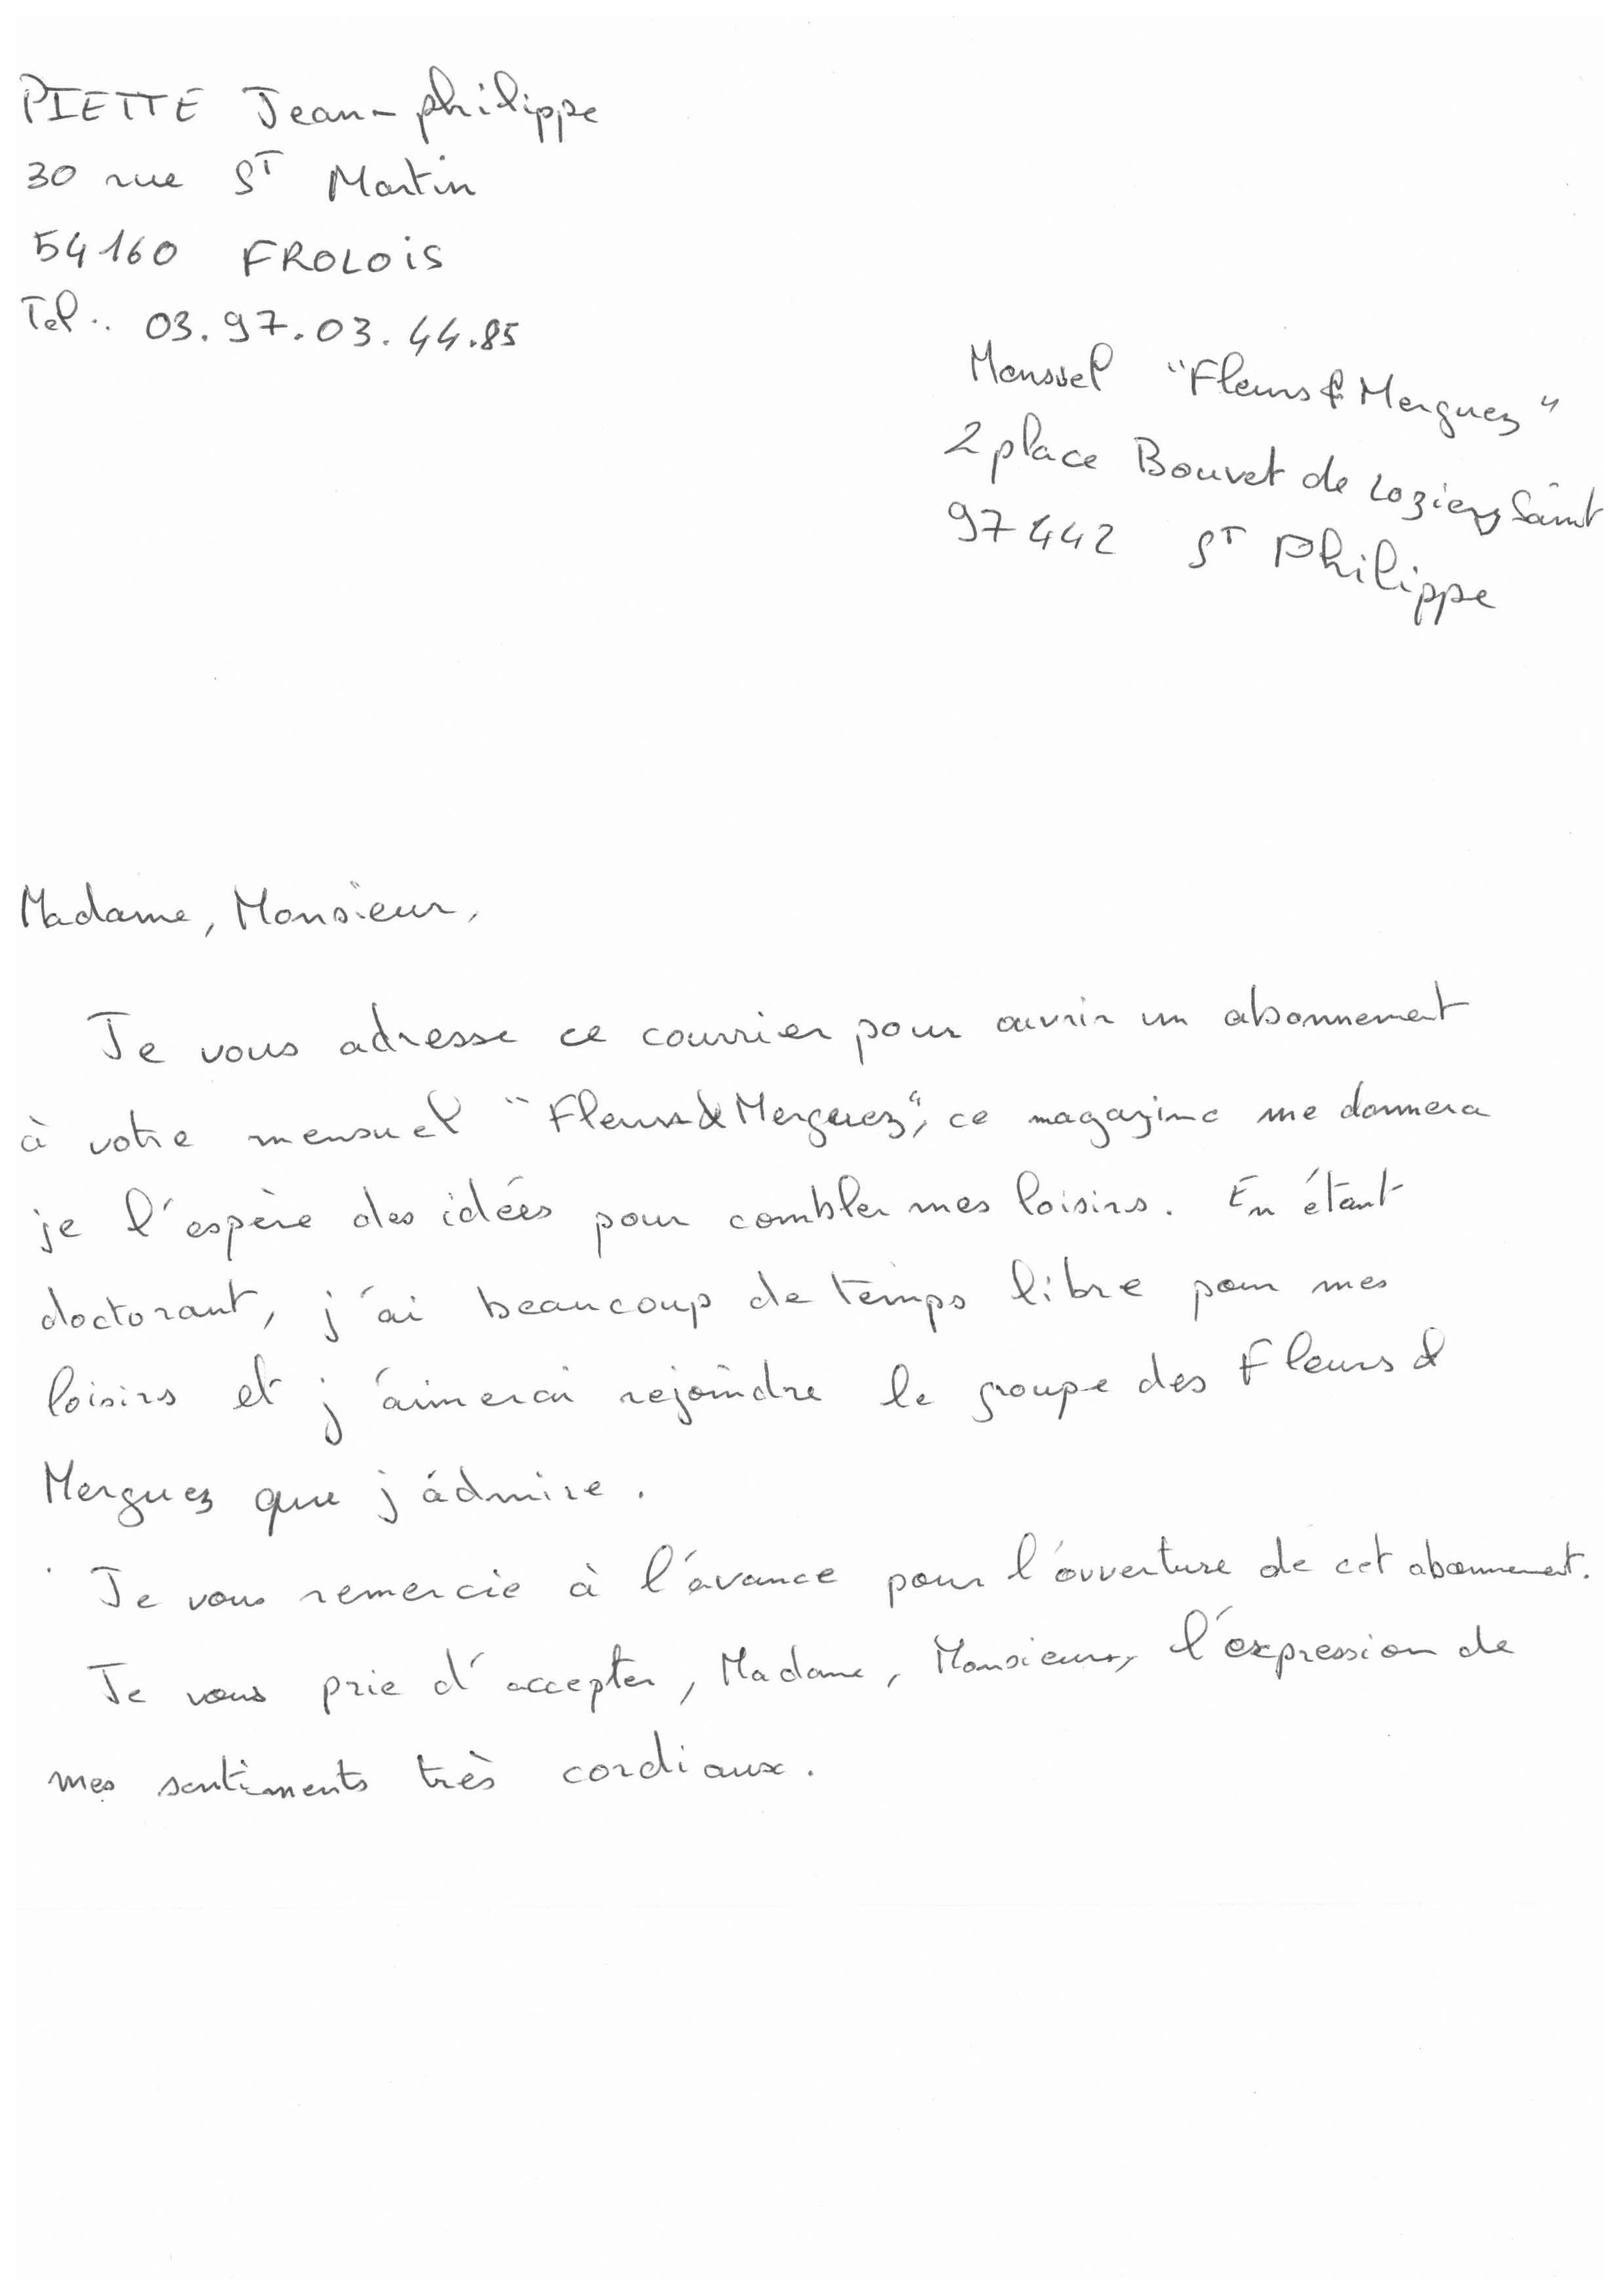 PIETTE Jean-philippe
30 rue ST Martin
54160 FROLOIS
Tel : 03.97.03.44.85
Mensuel "Fleurs & Merguez"
2 place Bouvet de Lozier Saint
97442 ST Philippe
Madame, Monsieur,
Je vous adresse ce courrier pour ouvrir un abonnement
à votre mensuel "Fleurs & Merguez", ce magazine me donnera
je l'espère des idées pour combler mes loisirs. En étant
doctorant, j'ai beaucoup de temps libre pour mes
loisirs et j'aimerai rejoindre le groupe des Fleurs &
Merguez que j'admire.
Je vous remercie à l'avance pour l'ouverture de cet abonnement.
Je vous prie d'accepter, Madame, Monsieur, l'expression de
mes sentiments très cordiaux.